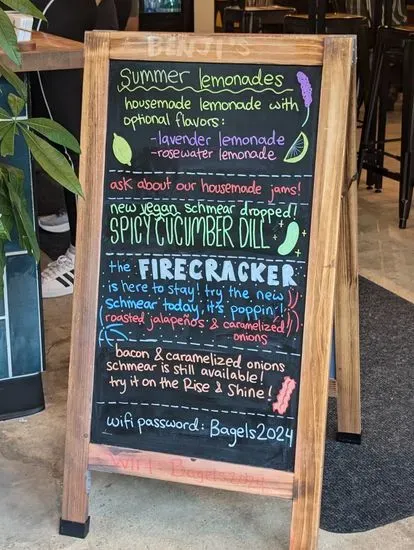 BENJI'S
Summer lemonades
housemade lemonade with
optional flavors:
-lavender lemonade
-rosewater lemonade
ask about our housemade jams!
new vegan schmear dropped!
SPICY CUCUMBER DILL
the FIRECRACKER
is here to stay! try the new
schmear today, it's poppin'!
roasted jalapeños & caramelized
onions
bacon & caramelized onions
schmear is still available!
try it on the Rise & Shine!
wifi password: Bagels2024
WIFI: Bagels2024